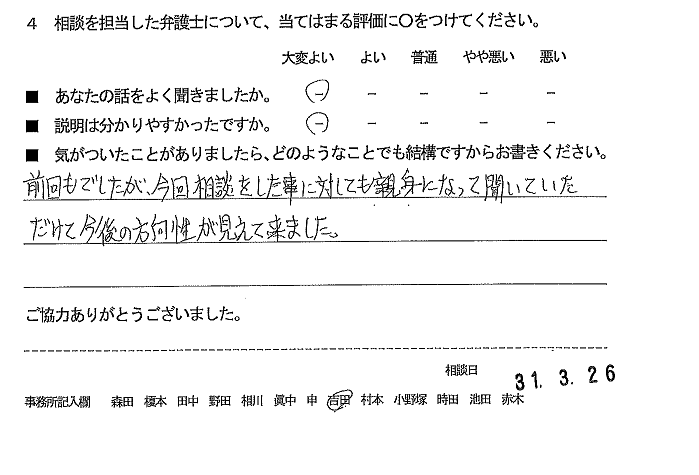 4 相談を担当した弁護士について、当てはまる評価に○をつけてください。
大変よい よい 普通 やや悪い 悪い
■ あなたの話をよく聞きましたか。 － － － － －
■ 説明は分かりやすかったですか。 － － － － －
■ 気がついたことがありましたら、どのようなことでも結構ですからお書きください。
前回もでしたが、今回相談をした事に対しても親身になって聞いていた
だけて今後の方向性が見えて来ました。
ご協力ありがとうございました。
相談日 31. 3. 26
事務所記入欄 森田 榎本 田中 野田 相川 眞中 申 吉田 村本 小野塚 時田 池田 赤木